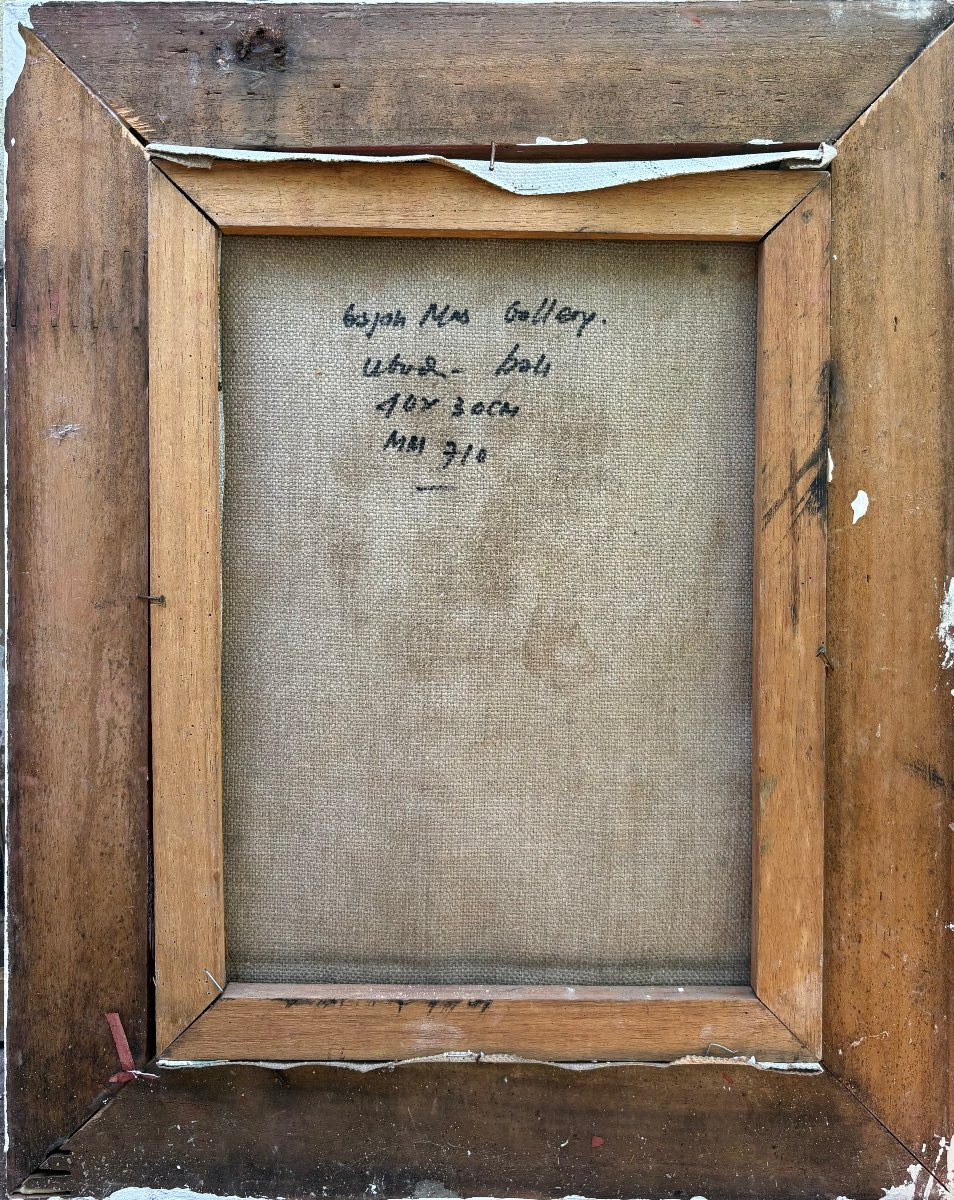 Gajah Mas Gallery.
Ubud - bali
40X 30CM
MM 710